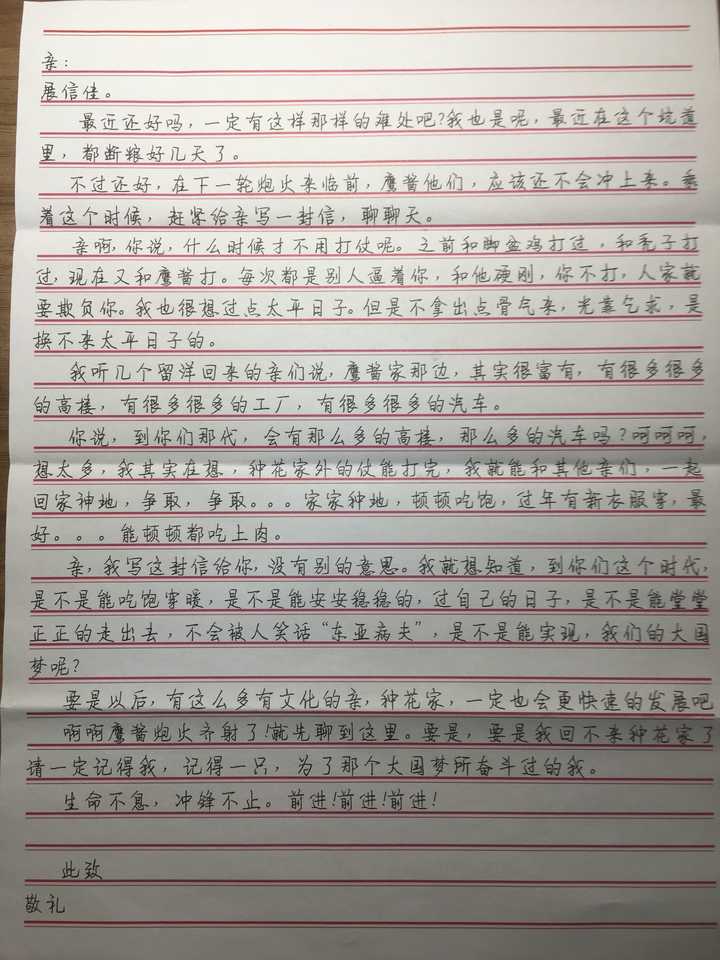 亲：
展信佳。
最近还好吗，一定有这样那样的难处吧？我也是呢，最近在这个坑道
里，都断粮好几天了。
不过还好，在下一轮炮火来临前，鹰酱他们，应该还不会冲上来。乘
着这个时候，赶紧给亲写一封信，聊聊天。
亲啊，你说，什么时候才不用打仗呢。之前和脚盆鸡打过，和秃子打
过，现在又和鹰酱打。每次都是别人逼着你，和他硬刚，你不打，人家就
要欺负你。我也很想过点太平日子。但是不拿出点骨气来，光靠乞求，是
换不来太平日子的。
我听几个留洋回来的亲们说，鹰酱家那边，其实很富有，有很多很多
的高楼，有很多很多的工厂，有很多很多的汽车。
你说，到你们那代，会有那么多的高楼，那么多的汽车吗？呵呵呵，
想太多，我其实在想，种花家外的仗能打完，我就能和其他亲们，一起
回家种地，争取，争取。。。家家种地，顿顿吃饱，过年有新衣服穿，最
好。。。能顿顿都吃上肉。
亲，我写这封信给你，没有别的意思。我就想知道，到你们这个时代，
是不是能吃饱穿暖，是不是能安安稳稳的，过自己的日子，是不是能堂堂
正正的走出去，不会被人笑话“东亚病夫”，是不是能实现，我们的大国
梦呢？
要是以后，有这么多有文化的亲，种花家，一定也会更快速的发展吧
啊啊鹰酱炮火齐射了！就先聊到这里。要是，要是我回不来种花家了
请一定记得我，记得一只，为了那个大国梦所奋斗过的我。
生命不息，冲锋不止。前进！前进！前进！
此致
敬礼